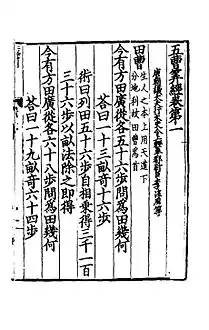 五曹算經卷第一
唐朝議大夫行太史令上輕車都尉臣李淳風等
田曹 生人之本上用天道下
分地利故田曹為首
今有方田廣從各五十六步問為田幾何
荅曰一十三畝奇十六步
術曰列田五十六步自相乘得三千一百
三十六步以畝法除之即得
今有方田廣從各六十八步問為田幾何
荅曰一十九畝奇六十四步